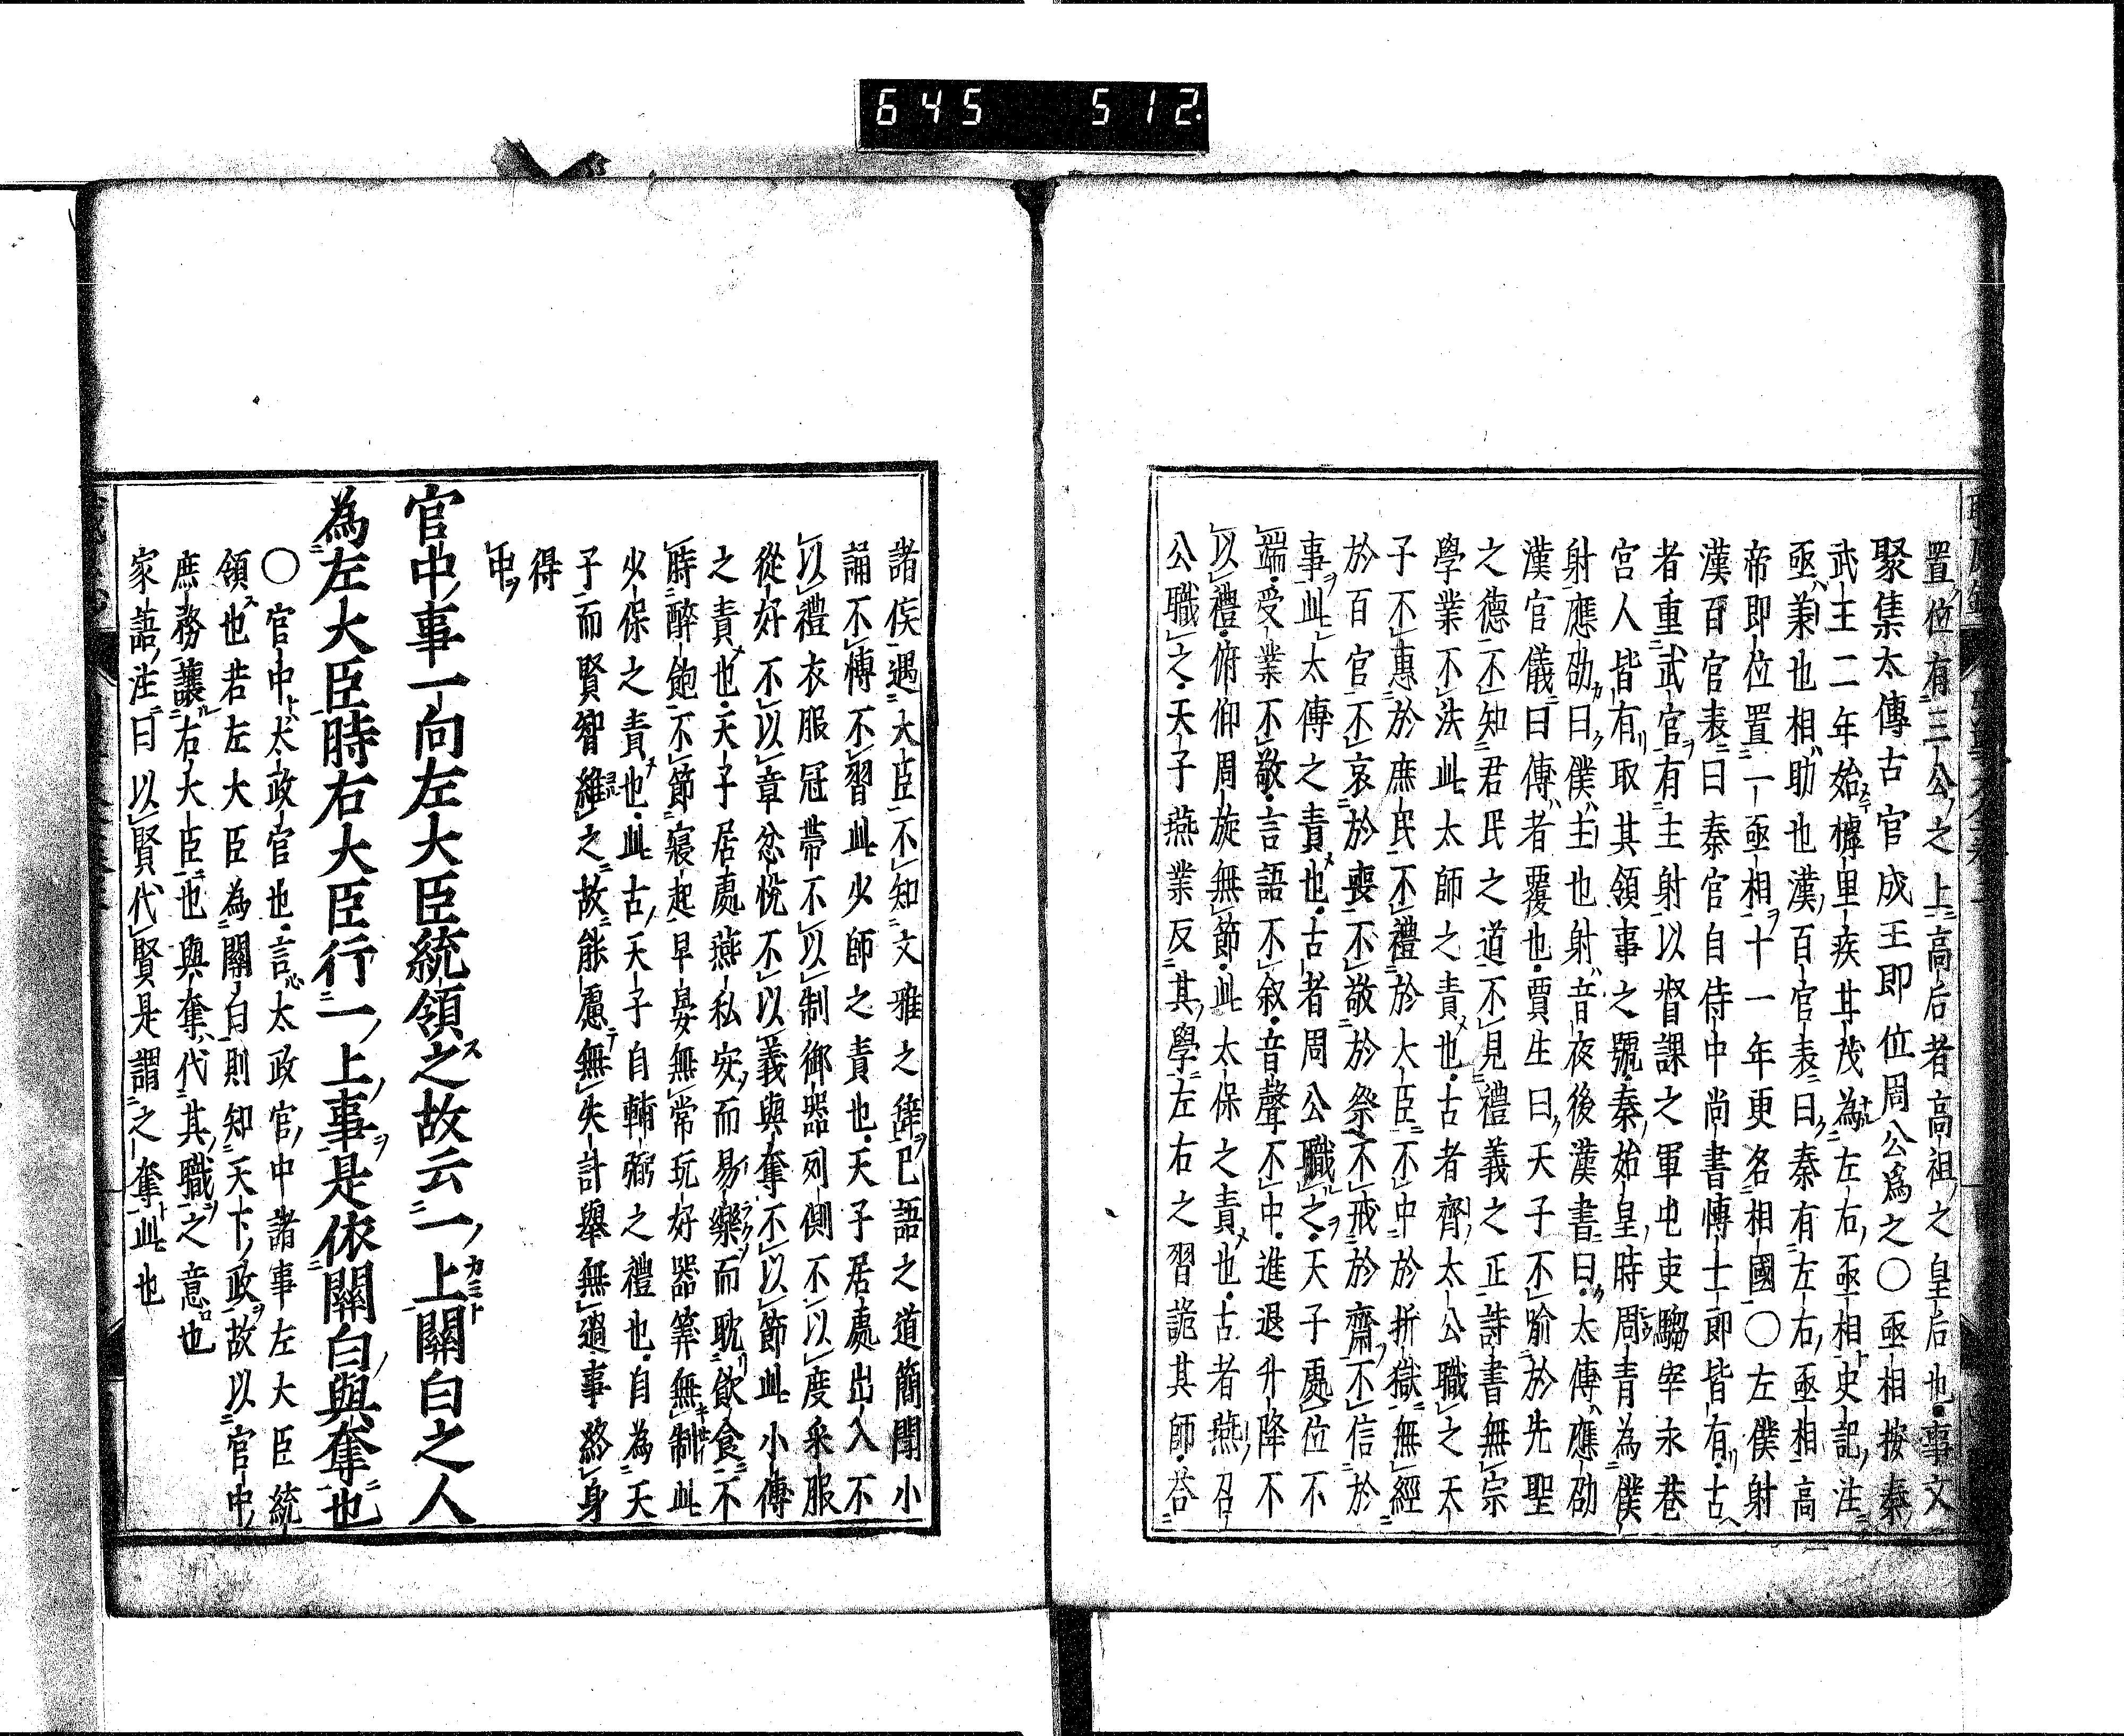 645 512
置位有三公之上高后者高祖之皇后也事文
聚集太傳古官成王即位周公爲之○亟相按秦
武王二年始樗里疾甘茂為左右亟相史記注
亟兼也相助也漢百官表曰秦有左右亟相高
帝即位置一亟相十一年更名相國○左僕射
漢百官表曰秦官自侍中尚書博士郎皆有古
者重武官有主射以督課之軍屯吏騶宰永巷
宮人皆有取其領事之號秦始皇時周青為僕
射應劭曰僕主也射音夜後漢書曰太傳應劭
漢官儀曰傳者覆也賈生曰天子不喻於先聖
之德不知君民之道不見禮義之正詩書無宗
學業不法此太師之責也古者齊太公職之天
子不惠於庶民不禮於大臣不中於折獄無經
於百官不哀於喪不敬於祭不戒於齋不信於
事此太傳之責也古者周公職之天子處位不
端受業不敬言語不叙音聲不中進退升降不
以禮俯仰周旋無節此太保之責也古者燕召
公職之天子燕業反其學左右之習詭其師荅
諸侯遇大臣不知文雅之辭已語之道簡聞小
誦不博不習此少師之責也天子居處出入不
以禮衣服冠帶不以制御器列側不以度采服
從好不以章忿悅不以義與奪不以節此小傳
之責也天子居處燕私安而易樂而耽飲食不
時醉飽不節寢起早晏無常玩好器筭無制此
少保之責也此古天子自輔弼之禮也自為天
子而賢智維之故能慮無失計舉無過事終身
得
中
官中事一向左大臣統領之故云一上關白之人
為左大臣時右大臣行一上事是依關白與奪也
○官中太政官也言太政官中諸事左大臣統
領也若左大臣為關白則知天下政故以官中
庶務讓右大臣也與奪代其職之意也
家語注曰以賢代賢是謂之奪此也